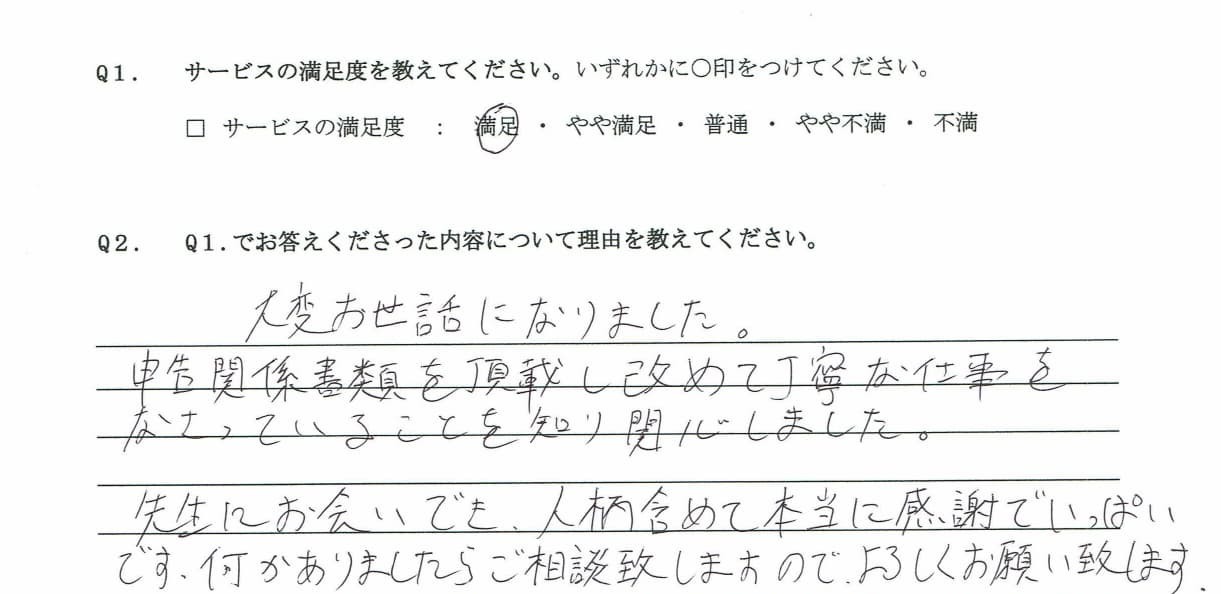 Q1. サービスの満足度を教えてください。いずれかに○印をつけてください。
□ サービスの満足度 : 満足 ・ やや満足 ・ 普通 ・ やや不満 ・ 不満
Q2. Q1.でお答えくださった内容について理由を教えてください。
大変お世話になりました。
申告関係書類を頂載し改めて丁寧な仕事を
なさっていることを知り関心しました。
先生にお会いでき、人柄含めて本当に感謝でいっぱい
です、何かありましたらご相談致しますので、よろしくお願い致します.